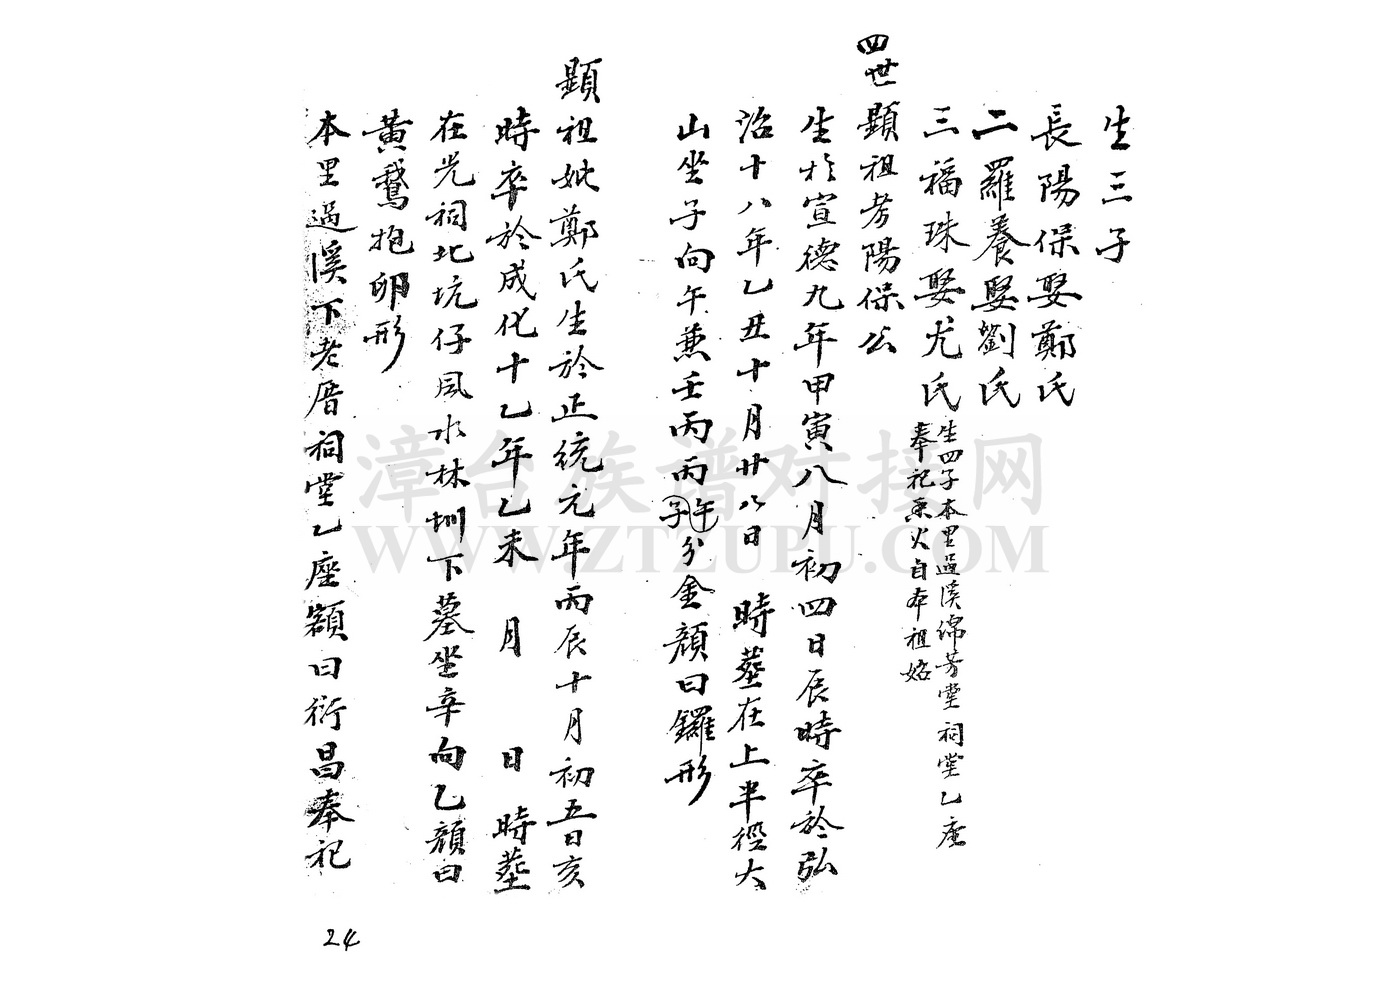 生三子
長陽保娶鄭氏
二羅養娶劉氏
三福珠娶尤氏
生四子本里過溪綿芳堂祠堂乙座
奉祀香火自本祖始
四世
顯祖考陽保公
生於宣德九年甲寅八月初四日辰時卒於弘
治十八年乙丑十月廿八日 時塟在上半徑大
山坐子向午兼壬丙丙子午分金顏曰鑼形
顯祖妣鄭氏生於正統元年丙辰十月初五日亥
時卒於成化十乙年乙未 月 日 時塟
在光祠北坑仔風水林圳下墓坐辛向乙顏曰
黃鵝抱卵形
本里過溪下老厝祠堂乙座額曰衍昌奉祀
24
漳台族谱对接网
WWW.ZTZUPU.COM